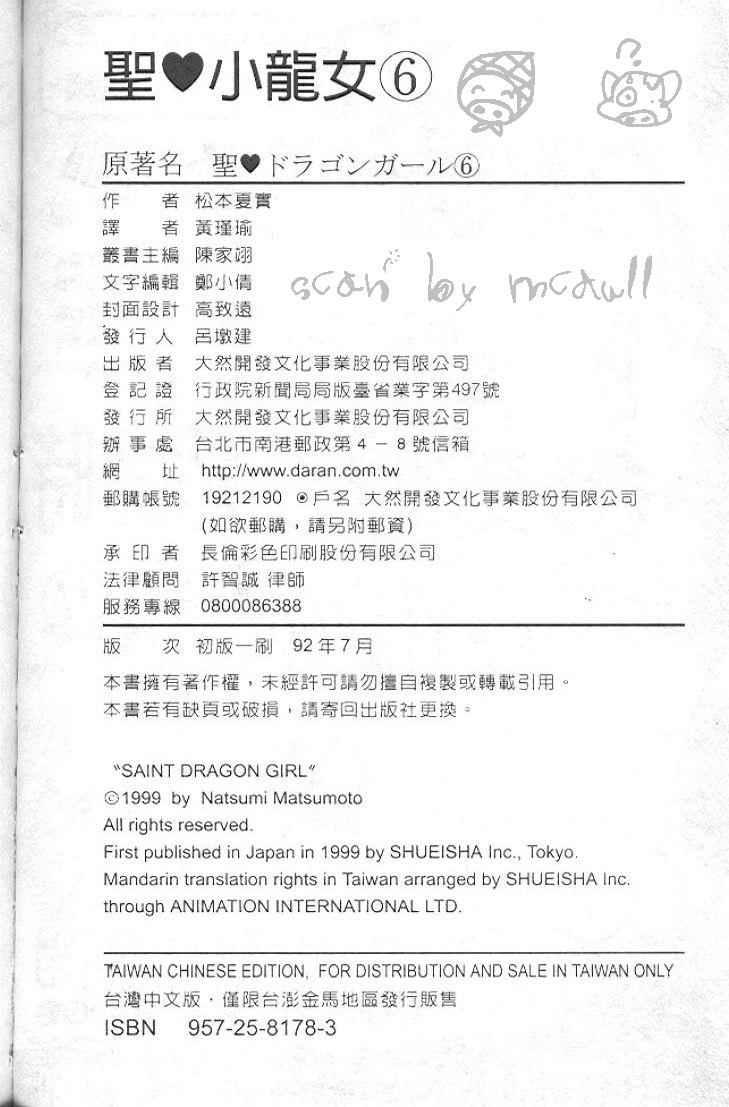 聖♥小龍女⑥
?
原著名 聖♥ドラゴンガール⑥
作 者 松本夏實
譯 者 黃瑾瑜
叢書主編 陳家翊
文字編輯 鄭小倩
scan by mcdull
封面設計 高致遠
發行人 呂墩建
出版者 大然開發文化事業股份有限公司
登記證 行政院新聞局局版臺省業字第497號
發行所 大然開發文化事業股份有限公司
辦事處 台北市南港郵政第4－8號信箱
網 址 http://www.daran.com.tw
郵購帳號 19212190 ⊙戶名 大然開發文化事業股份有限公司
(如欲郵購，請另附郵資)
承印者 長倫彩色印刷股份有限公司
法律顧問 許智誠 律師
服務專線 0800086388
版 次 初版一刷 92年7月
本書擁有著作權，未經許可請勿擅自複製或轉載引用。
本書若有缺頁或破損，請寄回出版社更換。
"SAINT DRAGON GIRL"
©1999 by Natsumi Matsumoto
All rights reserved.
First published in Japan in 1999 by SHUEISHA Inc., Tokyo.
Mandarin translation rights in Taiwan arranged by SHUEISHA Inc.
through ANIMATION INTERNATIONAL LTD.
TAIWAN CHINESE EDITION, FOR DISTRIBUTION AND SALE IN TAIWAN ONLY
台灣中文版．僅限台澎金馬地區發行販售
ISBN 957-25-8178-3